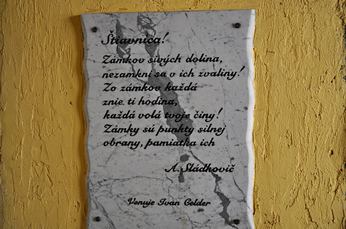 Štiavnica!
Zámkov sivých dolina,
nezamkni sa v ich zvaliny!
Zo zámkov každá
znie ti hodina,
každá volá tvoje činy!
Zámky sú punkty silnej
obrany, pamiatka ich
A. Sládkovič
Venuje Ivan Gelder